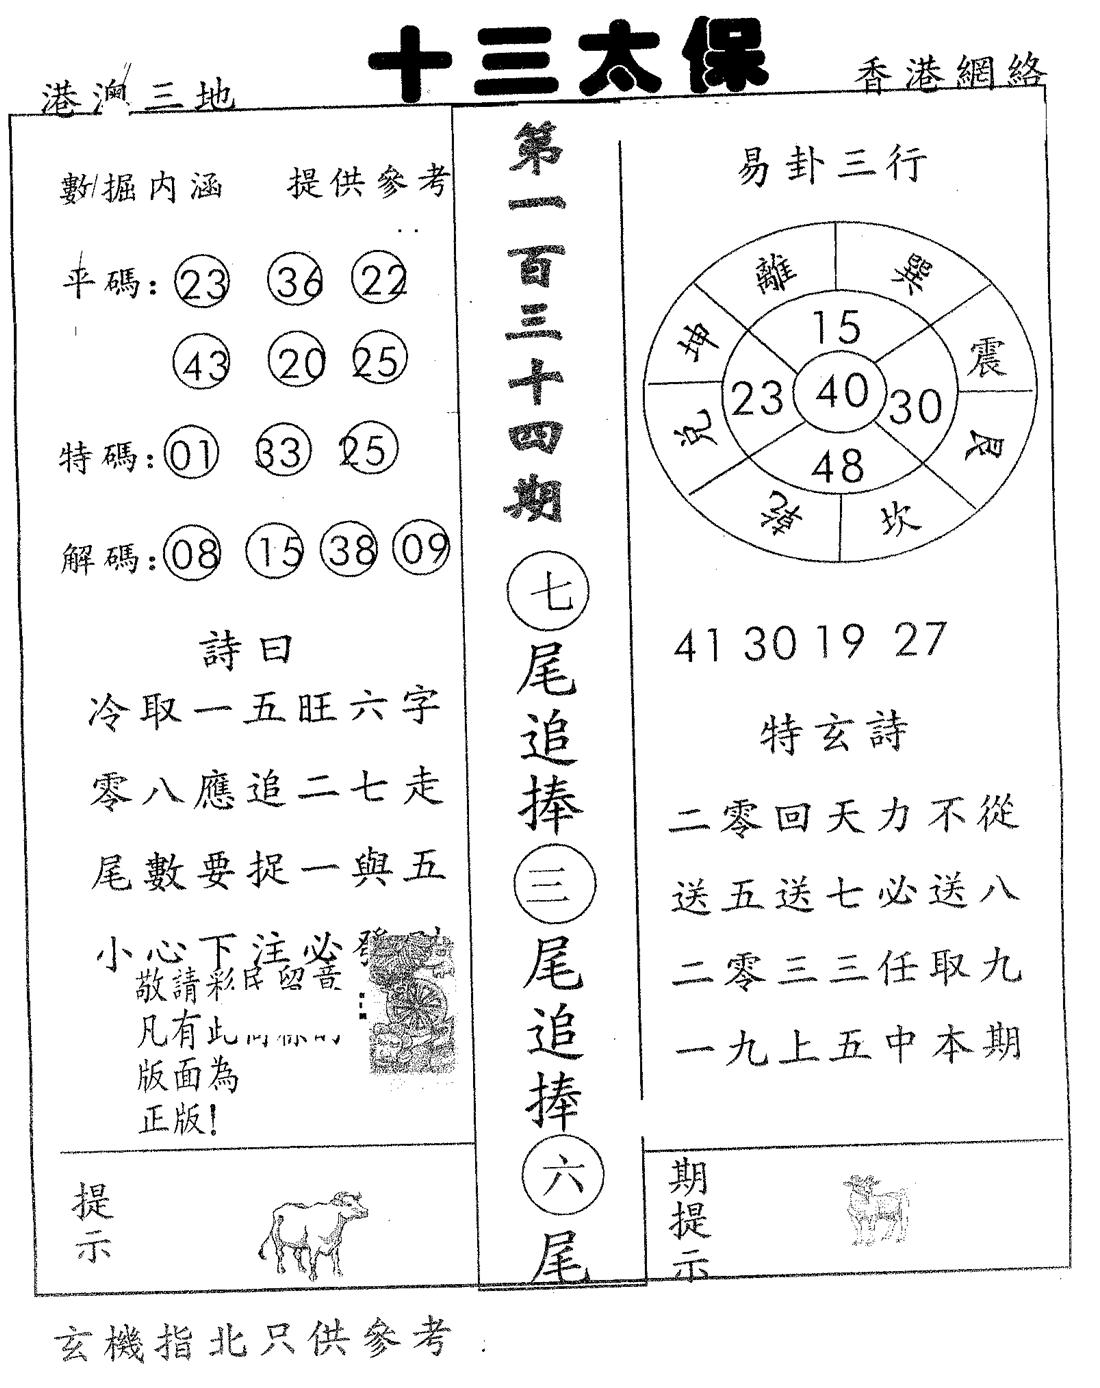 十三太保
港澳三地
香港網絡
數據内涵 提供參考
平碼: 23 36 22
43 20 25
特碼: 01 33 25
解碼: 08 15 38 09
詩曰
冷取一五旺六字
零八應追二七走
尾數要捉一與五
小心下注必發
敬請彩民留意
凡有此
版面為
正版!
提示
第一百三十四期
七尾追捧三尾追捧六尾
易卦三行
離 巽 震 艮 坎 乾 兌 坤
15
23 40 30
48
41 30 19 27
特玄詩
二零回天力不從
送五送七必送八
二零三三任取九
一九上五中本期
期提示
玄機指北只供參考